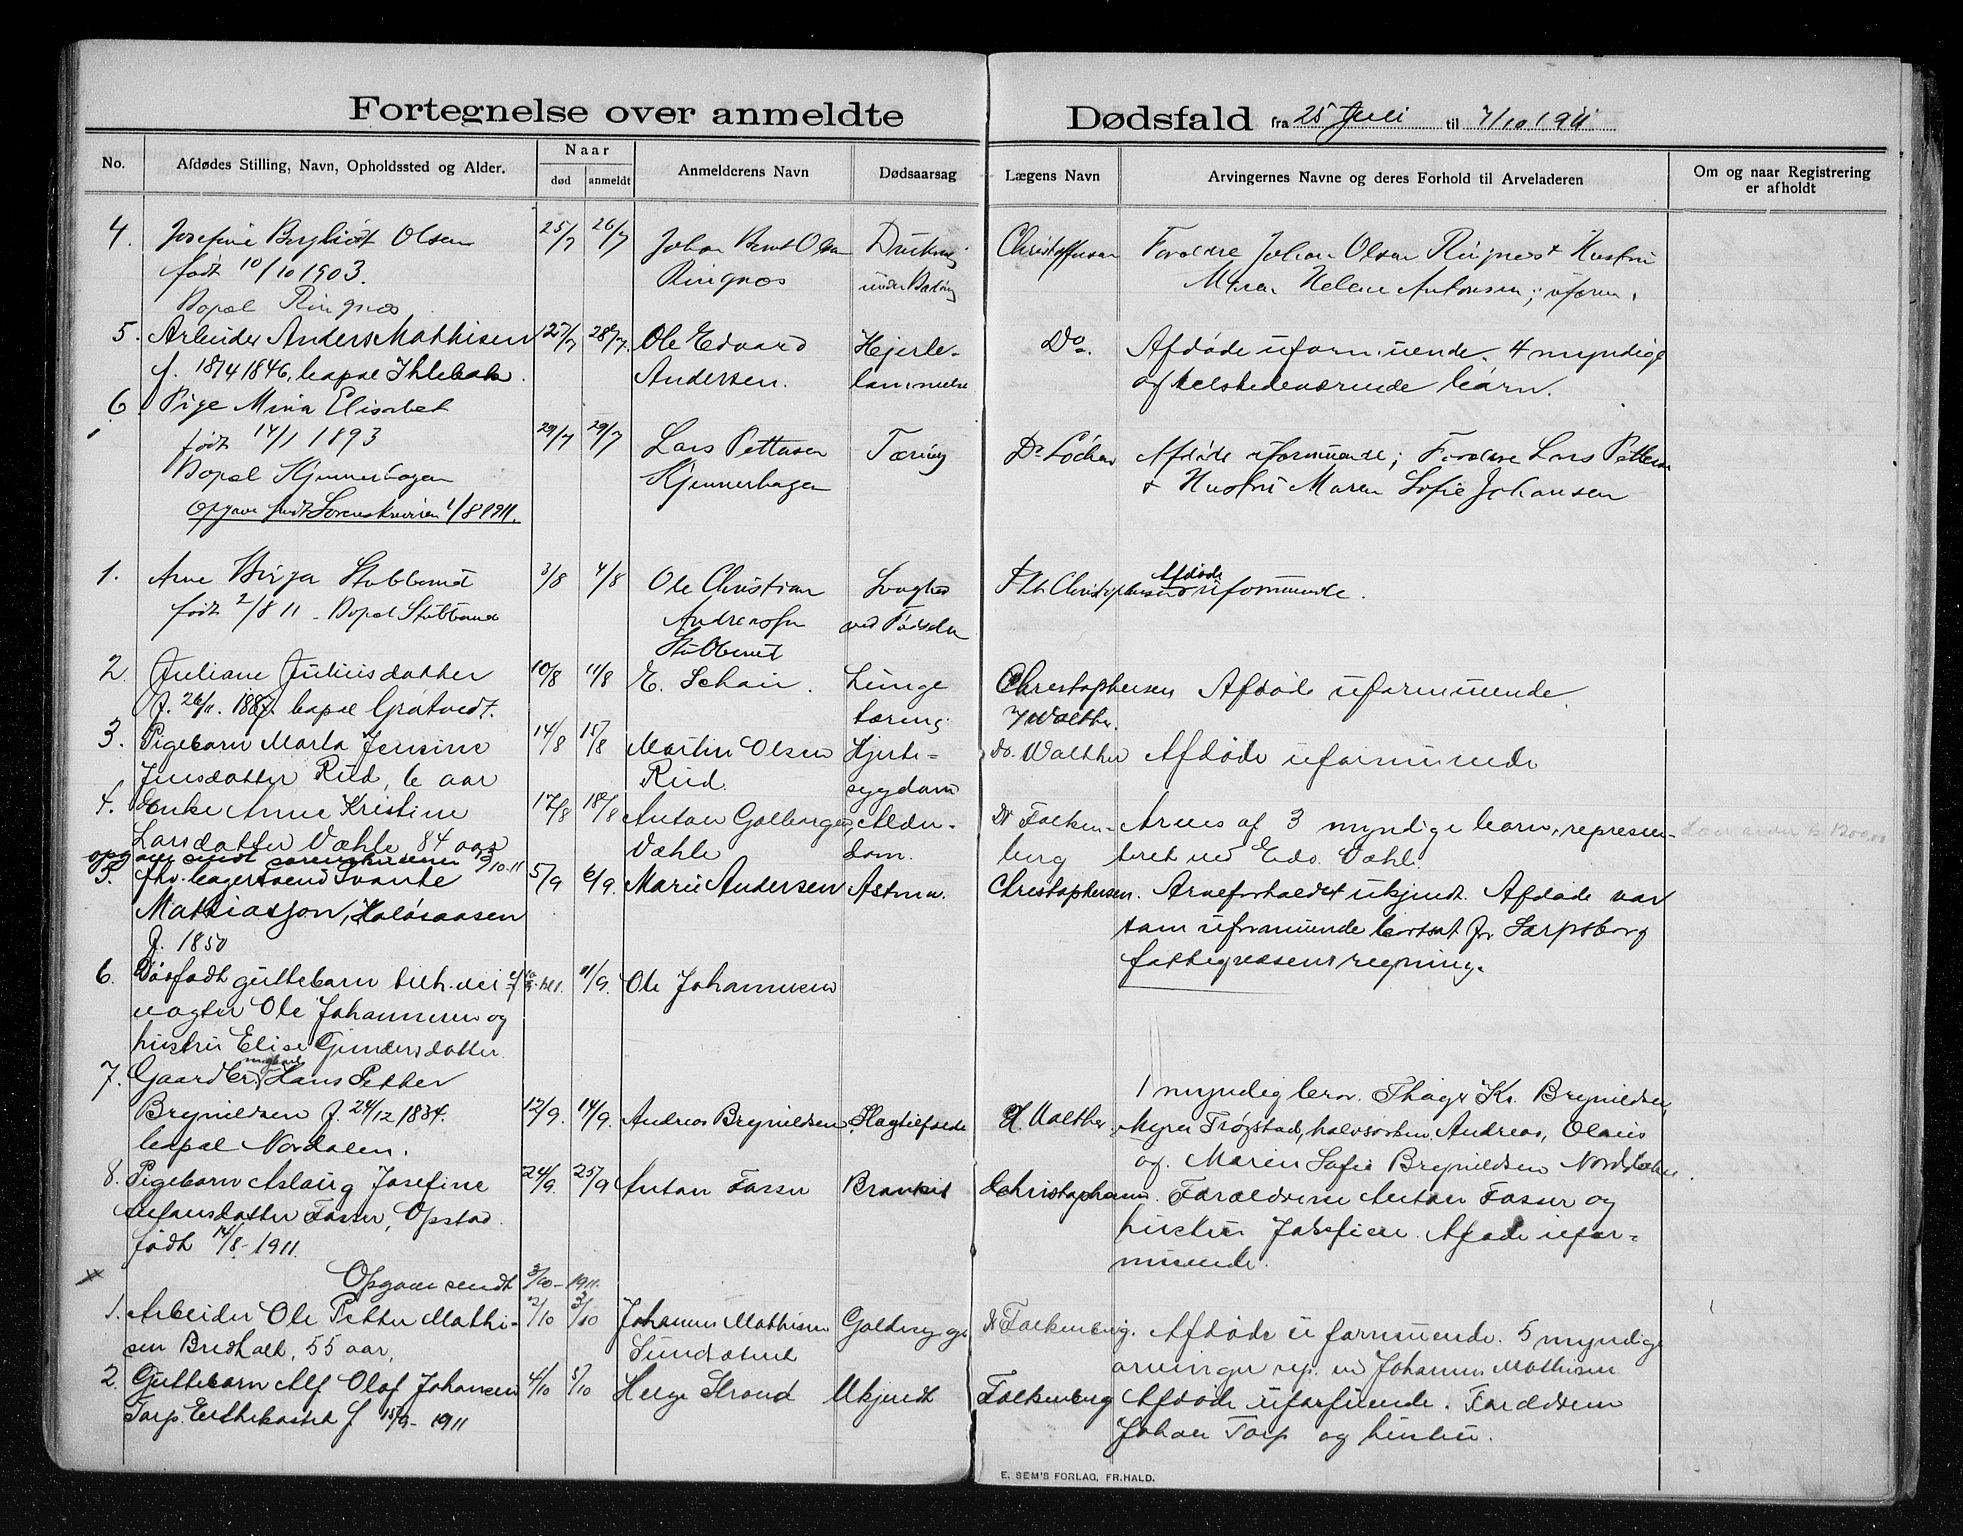 Fortegnelse over anmeldte Dødsfald fra 25 Juli til 7/10 1911
No. Afdødes Stilling, Navn, Opholdssted og Alder. Naar død anmeldt Anmelderens Navn Dødsaarsag Lægens Navn Arvingernes Navne og deres Forhold til Arveladeren Om og naar Registrering er afholdt
4. Josefine Bergliot Olsen 25/7 26/7 Johan Bernt Olsen Drukning Christoffersen Forældre Johan Olsen Ringnes + Hustru
født 10/10 1903. Ringnes under Badning Helene Antonsen; uform.
Bopæl Ringnes
5. Arbeider Anders Mathisen 27/7 28/7. Ole Edvard Hjerte- Do. Afdøde uformuende. 4 myndige
f. 18/4 1846, bopæl Ihlebæk. Andersen. lammelse og tilstedeværende børn.
6. Pige Mina Elisabet
født 14/1 1893 29/7 29/7 Lars Pettersen Tæring Dr Løchen Afdøde uformuende; Forældre Lars Pettersen
Bopæl Kjennerhagen Kjennerhagen + Hustru Maren Sofie Johansen
Opgave sendt Sorenskriveren 1/8 1911.
1. Arne Birger Stubberud 3/8 4/8 Ole Christian Svaghed Christophersen Afdøde uformuende.
født 2/8 11 - Bopæl Stubberud Andreassen ved Fødselen
Stubberud
2. Juliane Juliusdatter 10/8 11/8 E. Schau. Lunge Christophersen Afdøde uformuende.
f. 26/11. 1887. bopæl Grøtvedt. tæring. / Walther.
3. Pigebarn Marta Jensine 14/8 15/8 Martin Olsen Hjerte- do. Walther Afdøde uformuende
Jensdatter Rud, 6 aar Rud. sygdom
4. Enke Anne Kristine 17/8 18/8 Anton Alder- Dr Falken- Arves af 3 myndige børn, represen-
Larsdatter Væhle 84 aar Væhle dom. berg teret ved Edv. Væhle.
opgave sendt sorenskriveren 10-11
5. fhv. bagersvend Svante 5/9 6/9. Marie Andersen Astma. Christophersen. Arveforholdet ukjendt. Afdøde var
Mathiasson, som uformuende bortsat for Sarpsborg
f. 1850 fattigvæsens regning.
6. Dødfødt guttebarn 11/9. Ole Johannesen
vogter Ole Johannesen og
hustru Elise Gundersdatter.
7. Gaardbr. Hans Petter 1 myndig bror. Kr. Brynildsen
Brynildsen f. 24/12 1834. 12/9. 14/9. Andreas Brynildsen Slagtilfælde H. Walther Myrer Trøgstad, halvsøsken Andreas, Olaus
bopæl Nordalen. og Maren Sofie Brynildsen
8. Pigebarn Aslaug Josefine 24/9. 25/9 Anton Fosser Bronkit Christophersen. Forældrene Anton Fosser og
Antonsdatter Fosser, Opstad hustru Josefine. Afdøde ufor-
født 14/8-1911. muende.
Opgave sendt 3/10-1911.
1. Arbeider Ole Petter Mathi- 2/10 3/10 Johannes Mathisen Dr Falkenberg. Afdøde uformuende. 5 myndige
sen Bredholt, 55 aar, arvinger rep. ved Johannes Mathisen
2. Guttebarn Alf Olaf Johansen 4/10 5/10 Helge Strand Ukjendt Falkenberg Afdøde uformuende. Forældrene
Torp, f 15/9-1911 Johan Torp og hustru.
E. SEM'S FORLAG, FR.HALD.